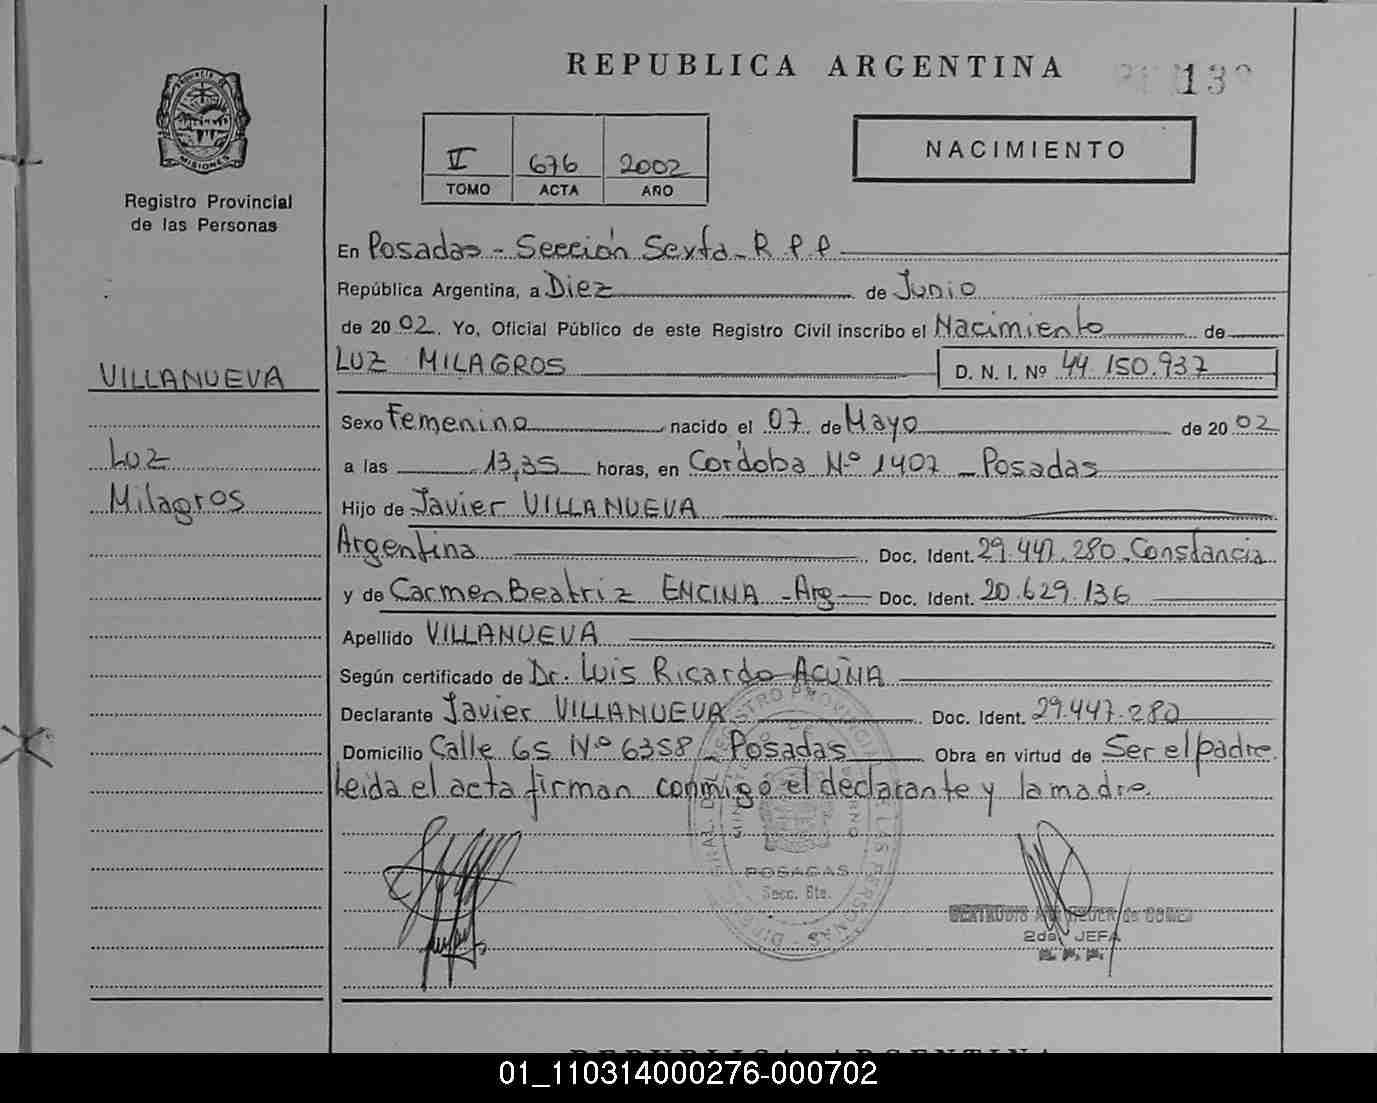 REPUBLICA ARGENTINA
13
PROVINCIA DE MISIONES
Registro Provincial
de las Personas
II 676 2002
TOMO ACTA AÑO
NACIMIENTO
En Posadas - Sección Sexta - R.P.P.
República Argentina, a Diez de Junio
de 20 02. Yo, Oficial Público de este Registro Civil inscribo el Nacimiento de
LUZ MILAGROS D. N. I. Nº 44.150.937
VILLANUEVA
Luz
Milagros
Sexo Femenino nacido el 07 de Mayo de 20 02
a las 13,35 horas, en Córdoba Nº 1407 - Posadas
Hijo de Javier VILLANUEVA
Argentina Doc. Ident. 29.447.280 Constancia
y de Carmen Beatriz ENCINA - Arg - Doc. Ident. 20.629.136
Apellido VILLANUEVA
Según certificado de Dr. Luis Ricardo ACUÑA
Declarante Javier VILLANUEVA Doc. Ident. 29.447.280
Domicilio Calle 65 Nº 6358 - Posadas Obra en virtud de Ser el padre
Leida el acta firman conmigo el declarante y la madre
POSADAS
Secc. 6ta.
GERTRUDIS de GOMEZ
2da. JEFA
R. P. P.
REPUBLICA ARGENTINA
01_110314000276-000702